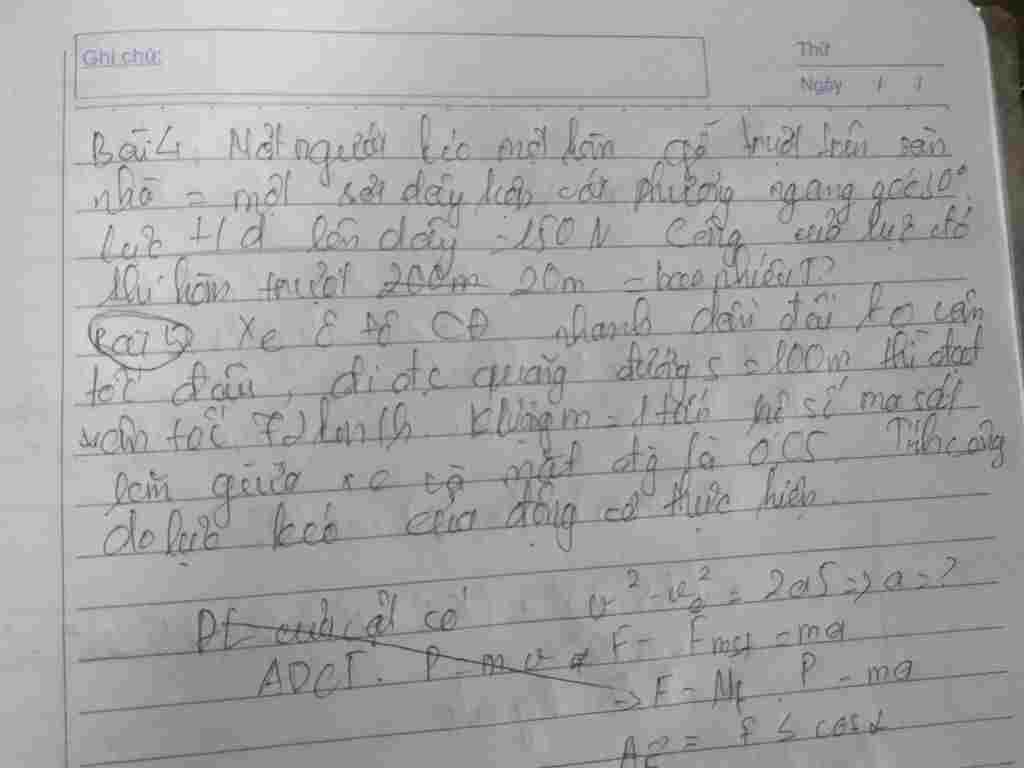 Ghi chú:
Thứ
Ngày / /
Bài 4. Một người kéo một hòn gỗ trượt trên sàn
nhà = một sợi dây hợp với phương ngang góc
lực t/d lên dây = 150N Công của lực đó
khi hòn trượt 200m 20m = bao nhiêu?
Bài 5 Xe ô tô CĐ nhanh dần đều ko vận
tốc đầu, đi đc quãng đường s = 100m thì đạt
vận tốc 72km/h. Klượng m = 1 tấn hệ số ma sát
lăn giữa xe và mặt đg là 0,05 Tính công
do lực kéo của động cơ thực hiện.
có v² - v₀² = 2aS => a = ?
ADCT. P = m v F - Fmst = ma
=> F - P = ma
F S cosα